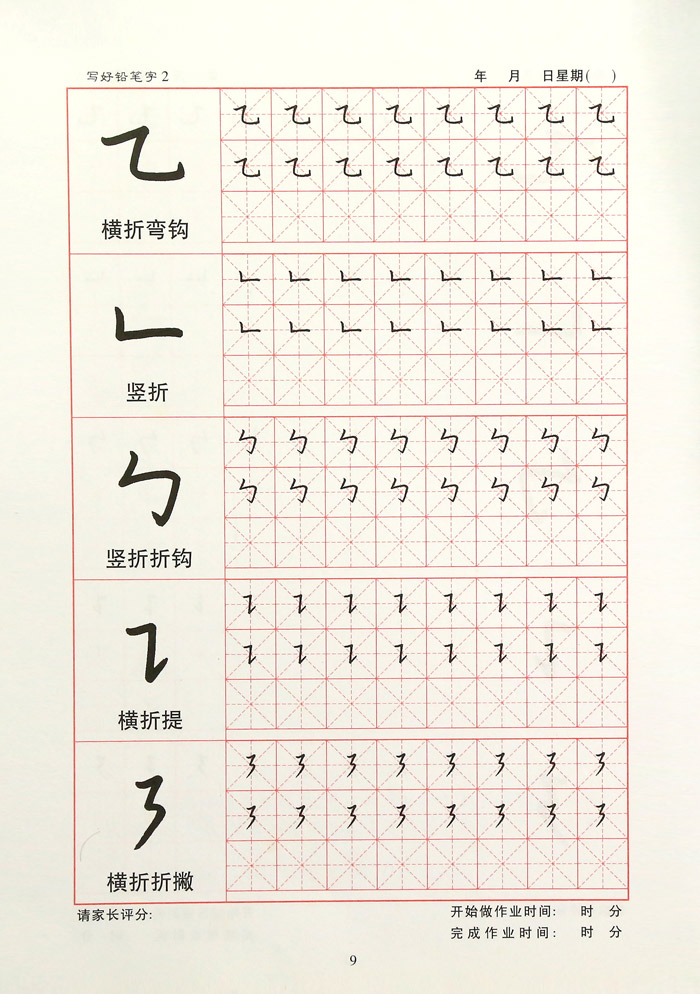 写好铅笔字 2
年 月 日星期( )
乙 乙 乙 乙 乙 乙 乙 乙 乙
乙 乙 乙 乙 乙 乙 乙 乙
横折弯钩
𠃊 𠃊 𠃊 𠃊 𠃊 𠃊 𠃊 𠃊 𠃊
𠃊 𠃊 𠃊 𠃊 𠃊 𠃊 𠃊 𠃊
竖折
㇉ ㇉ ㇉ ㇉ ㇉ ㇉ ㇉ ㇉ ㇉
㇉ ㇉ ㇉ ㇉ ㇉ ㇉ ㇉ ㇉
竖折折钩
㇊ ㇊ ㇊ ㇊ ㇊ ㇊ ㇊ ㇊ ㇊
㇊ ㇊ ㇊ ㇊ ㇊ ㇊ ㇊ ㇊
横折提
㇋ ㇋ ㇋ ㇋ ㇋ ㇋ ㇋ ㇋ ㇋
㇋ ㇋ ㇋ ㇋ ㇋ ㇋ ㇋ ㇋
横折折撇
请家长评分:
开始做作业时间: 时 分
完成作业时间: 时 分
9